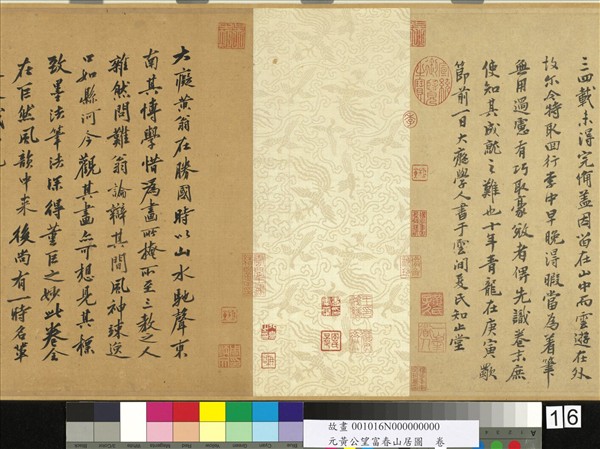 三四載未得完備蓋因留在山中而雲遊在外
故尔今特取回行李中早晚得暇當為著筆
無用過慮有巧取豪敚者俾先識卷末庶
使知其成就之難也十年青龍在庚寅歜
節前一日大癡學人書于雲間夏氏知止堂
大癡黃翁在勝國時以山水馳聲東
南其博學惜為畫所掩所至三教之人
雜然問難翁論辯其間風神竦逸
口如懸河今觀其畫亦可想見其標
致墨法筆法深得董巨之妙此卷全
在巨然風韻中来後尚有一時名輩
故畫 001016N000000000
元黃公望富春山居圖 卷
16